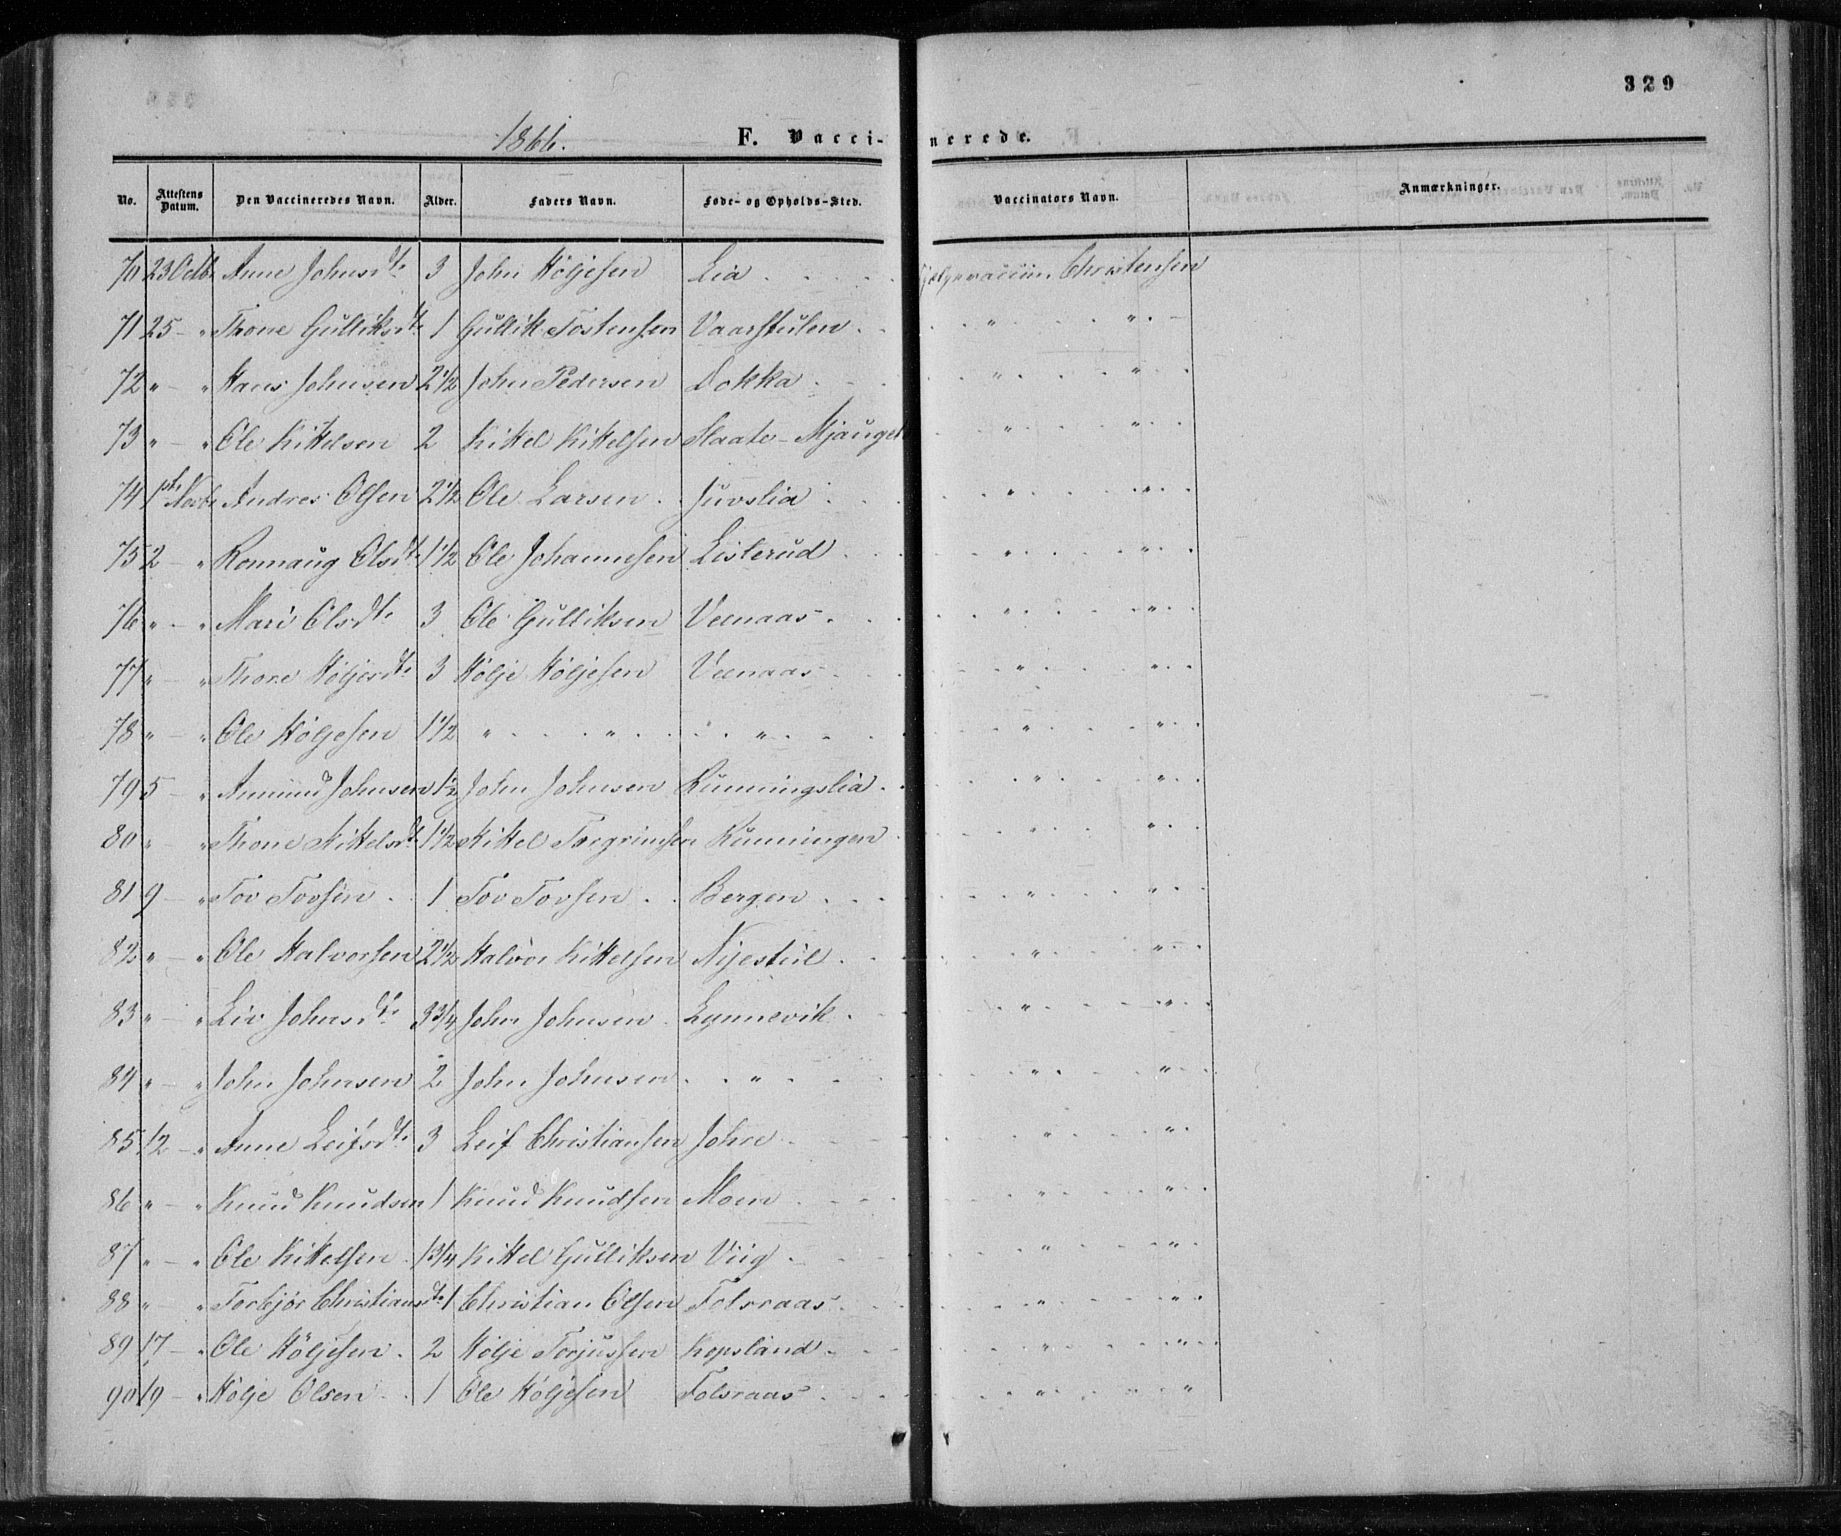 329
1866.
F. Vacci-nerede.
No. Attestens Datum. Den Vaccineredes Navn. Alder. Faders Navn. Føde- og Opholds-Sted. Vaccinators Navn. Anmærkninger.
70 23 Octb Anne Johnsdtr 3 John Höljesen Lia Christensen
71 25 - " Thone Gulliksdtr 1 Gullik Tostensen Vaarstulen " "
72 " - " Hans Johnsen 2 1/2 John Pedersen Dokka " "
73 " - " Ole Kittelsen 2 Kittel Kittelsen Slaato-Mjauget " "
74 1ste Novbr Andres Olsen 2 1/2 Ole Larsen Juvslia " "
75 2 " Ronnaug Olsdtr 1 1/2 Ole Johannesen Listerud " "
76 " - " Mari Olsdtr 3 Ole Gulliksen Veenaas " "
77 " - " Thone Höljesdtr 3 Hölje Höljesen Veenaas " "
78 " - " Ole Höljesen 1 1/2 " " " " "
79 5 - " Anmund Johnsen 1/2 John Johnsen Runningslia " "
80 " " Thone Kittelsdtr 1 1/2 Kittel Torgrimsen Runningen " "
81 9 - " Tov Tovsen 1 Tov Tovsen Bergen " "
82 " - " Ole Halvorsen 2 1/2 Halvor Kittelsen Nyestul " "
83 " - " Liv Johnsdtr 3 3/4 John Johnsen Lynnevik " "
84 " - " John Johnsen 2 John Johnsen " " "
85 12 - " Anne Leifsdtr 3 Leif Christiansen Johre " "
86 " - " Knud Knudsen 1 Knud Knudsen Moen " "
87 " - " Ole Kittelsen 1 3/4 Kittel Gulliksen Viig " "
88 " - " Torbjør Christiansdtr 1 Christian Olsen Tolsraas " "
89 17 - " Ole Höljesen 2 Hölje Torjussen Kopsland " "
90 19 - " Hölje Olsen 1 Ole Höljesen Tolsraas " "